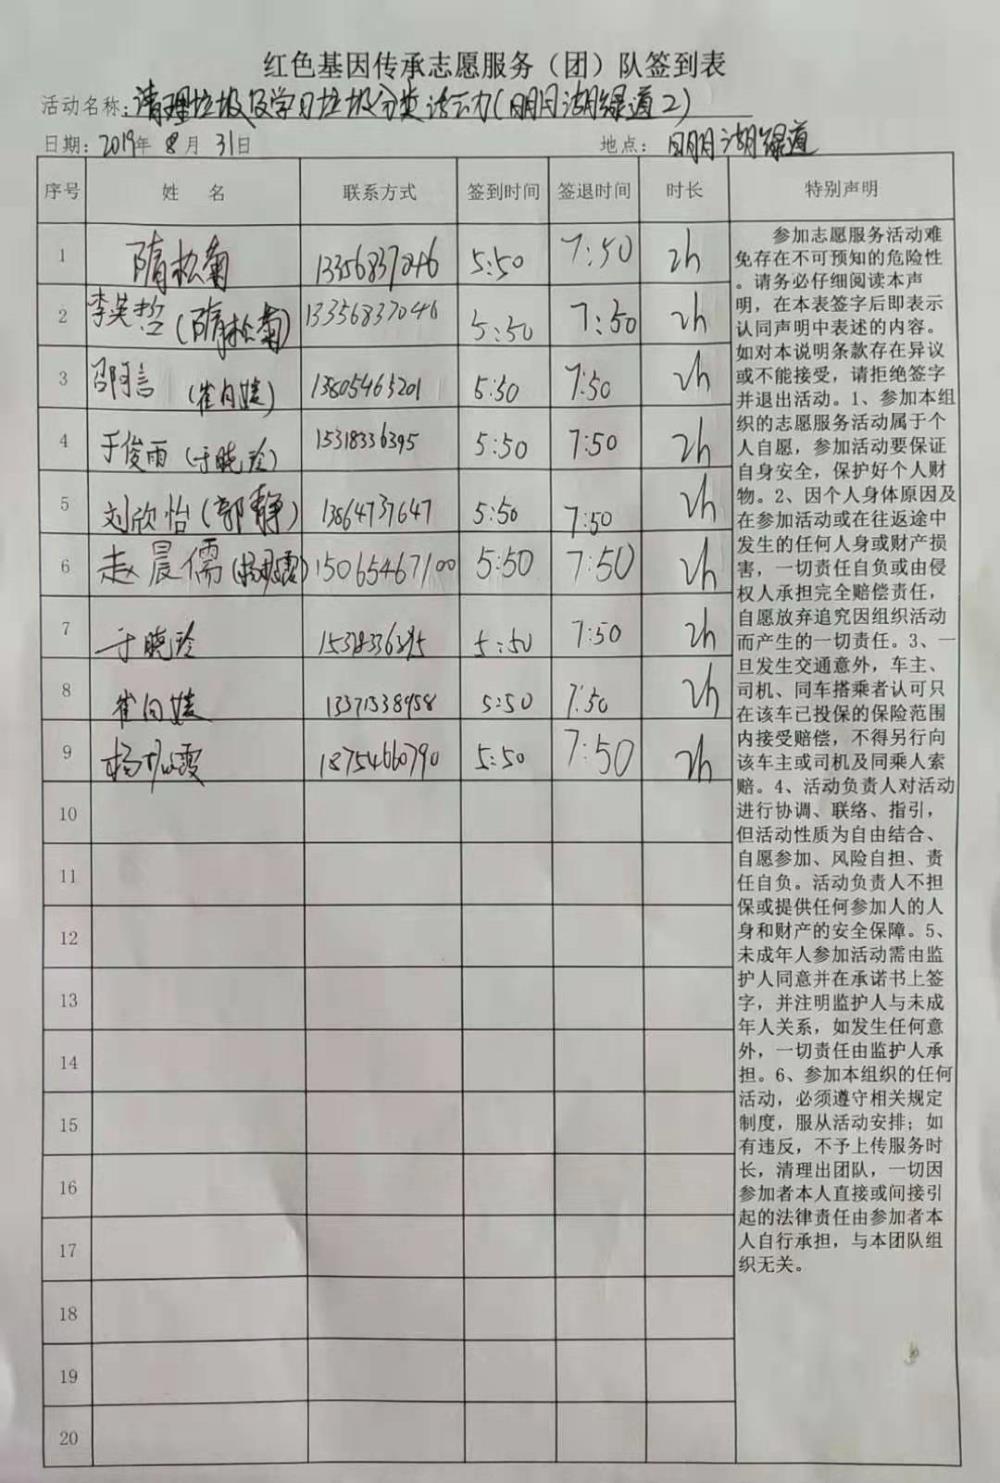 红色基因传承志愿服务（团）队签到表
活动名称：清理垃圾及学习垃圾分类活动（明月湖绿道2）
日期：2019年 8月 31日 地点： 明月湖绿道
序号 姓 名 联系方式 签到时间 签退时间 时长 特别声明
1 隋松菊 13356837046 5:50 7:50 2h
2 李英哲（隋松菊） 13356837046 5:50 7:50 2h
3 邵 言（崔 ） 13805463201 5:50 7:50 2h
4 于俊雨（于晓玲） 15318336395 5:50 7:50 2h
5 刘欣怡（郭静） 13864737647 5:50 7:50 2h
6 赵晨儒（杨 霞） 15065467100 5:50 7:50 2h
7 于晓玲 5:50 7:50 2h
8 崔 13371538958 5:50 7:50 2h
9 杨 霞 18754660790 5:50 7:50 2h
10
11
12
13
14
15
16
17
18
19
20
参加志愿服务活动难
免存在不可预知的危险性
。请务必仔细阅读本声
明，在本表签字后即表示
认同声明中表述的内容。
如对本说明条款存在异议
或不能接受，请拒绝签字
并退出活动。1、参加本组
织的志愿服务活动属于个
人自愿，参加活动要保证
自身安全，保护好个人财
物。2、因个人身体原因及
在参加活动或在往返途中
发生的任何人身或财产损
害，一切责任自负或由侵
权人承担完全赔偿责任，
自愿放弃追究因组织活动
而产生的一切责任。3、一
旦发生交通意外，车主、
司机、同车搭乘者认可只
在该车已投保的保险范围
内接受赔偿，不得另行向
该车主或司机及同乘人索
赔。4、活动负责人对活动
进行协调、联络、指引，
但活动性质为自由结合、
自愿参加、风险自担、责
任自负。活动负责人不担
保或提供任何参加人的人
身和财产的安全保障。5、
未成年人参加活动需由监
护人同意并在承诺书上签
字，并注明监护人与未成
年人关系，如发生任何意
外，一切责任由监护人承
担。6、参加本组织的任何
活动，必须遵守相关规定
制度，服从活动安排；如
有违反，不予上传服务时
长，清理出团队，一切因
参加者本人直接或间接引
起的法律责任由参加者本
人自行承担，与本团队组
织无关。